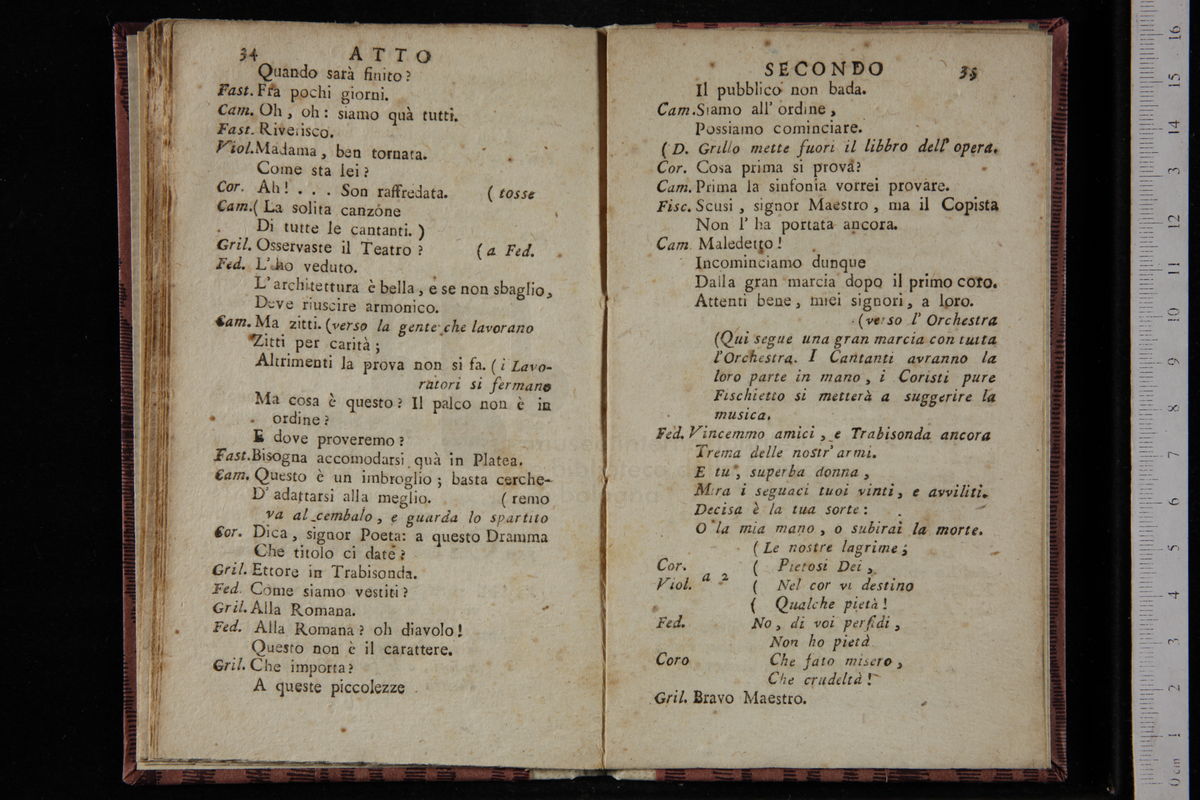 34 ATTO
Quando sarà finito?
Fast. Fra pochi giorni.
Cam. Oh, oh: siamo quà tutti.
Fast. Riverisco.
Viol. Madama, ben tornata.
Come sta lei?
Cor. Ah! . . . Son raffredata. (tosse
Cam. (La solita canzone
Di tutte le cantanti.)
Gril. Osservaste il Teatro? (a Fed.
Fed. L'ho veduto.
L'architettura è bella, e se non sbaglio,
Deve riuscire armonico.
Cam. Ma zitti. (verso la gente che lavorano
Zitti per carità;
Altrimenti la prova non si fa. (i Lavo-
ratori si fermano
Ma cosa è questo? Il palco non è in
ordine?
E dove proveremo?
Fast. Bisogna accomodarsi quà in Platea.
Cam. Questo è un imbroglio; basta cerche-
D'adattarsi alla meglio. (remo
va al cembalo, e guarda lo spartito
Cor. Dica, signor Poeta: a questo Dramma
Che titolo ci date?
Gril. Ettore in Trabisonda.
Fed. Come siamo vestiti?
Gril. Alla Romana.
Fed. Alla Romana? oh diavolo!
Questo non è il carattere.
Gril. Che importa?
A queste piccolezze
SECONDO 35
Il pubblico non bada.
Cam. Siamo all'ordine,
Possiamo cominciare.
(D. Grillo mette fuori il libbro dell'opera.
Cor. Cosa prima si prova?
Cam. Prima la sinfonia vorrei provare.
Fisc. Scusi, signor Maestro, ma il Copista
Non l'ha portata ancora.
Cam. Maledetto!
Incominciamo dunque
Dalla gran marcia dopo il primo coro.
Attenti bene, miei signori, a loro.
(verso l'Orchestra
(Qui segue una gran marcia con tutta
l'Orchestra. I Cantanti avranno la
loro parte in mano, i Coristi pure
Fischietto si metterà a suggerire la
musica.
Fed. Vincemmo amici, e Trabisonda ancora
Trema delle nostr'armi.
E tu, superba donna,
Mira i seguaci tuoi vinti, e avviliti.
Decisa è la tua sorte:
O la mia mano, o subirai la morte.
(Le nostre lagrime;
Cor. ( Pietosi Dei,
Viol. a 2 ( Nel cor vi destino
( Qualche pietà!
Fed. No, di voi perfidi,
Non ho pietà
Coro Che fato misero,
Che crudeltà!
Gril. Bravo Maestro.